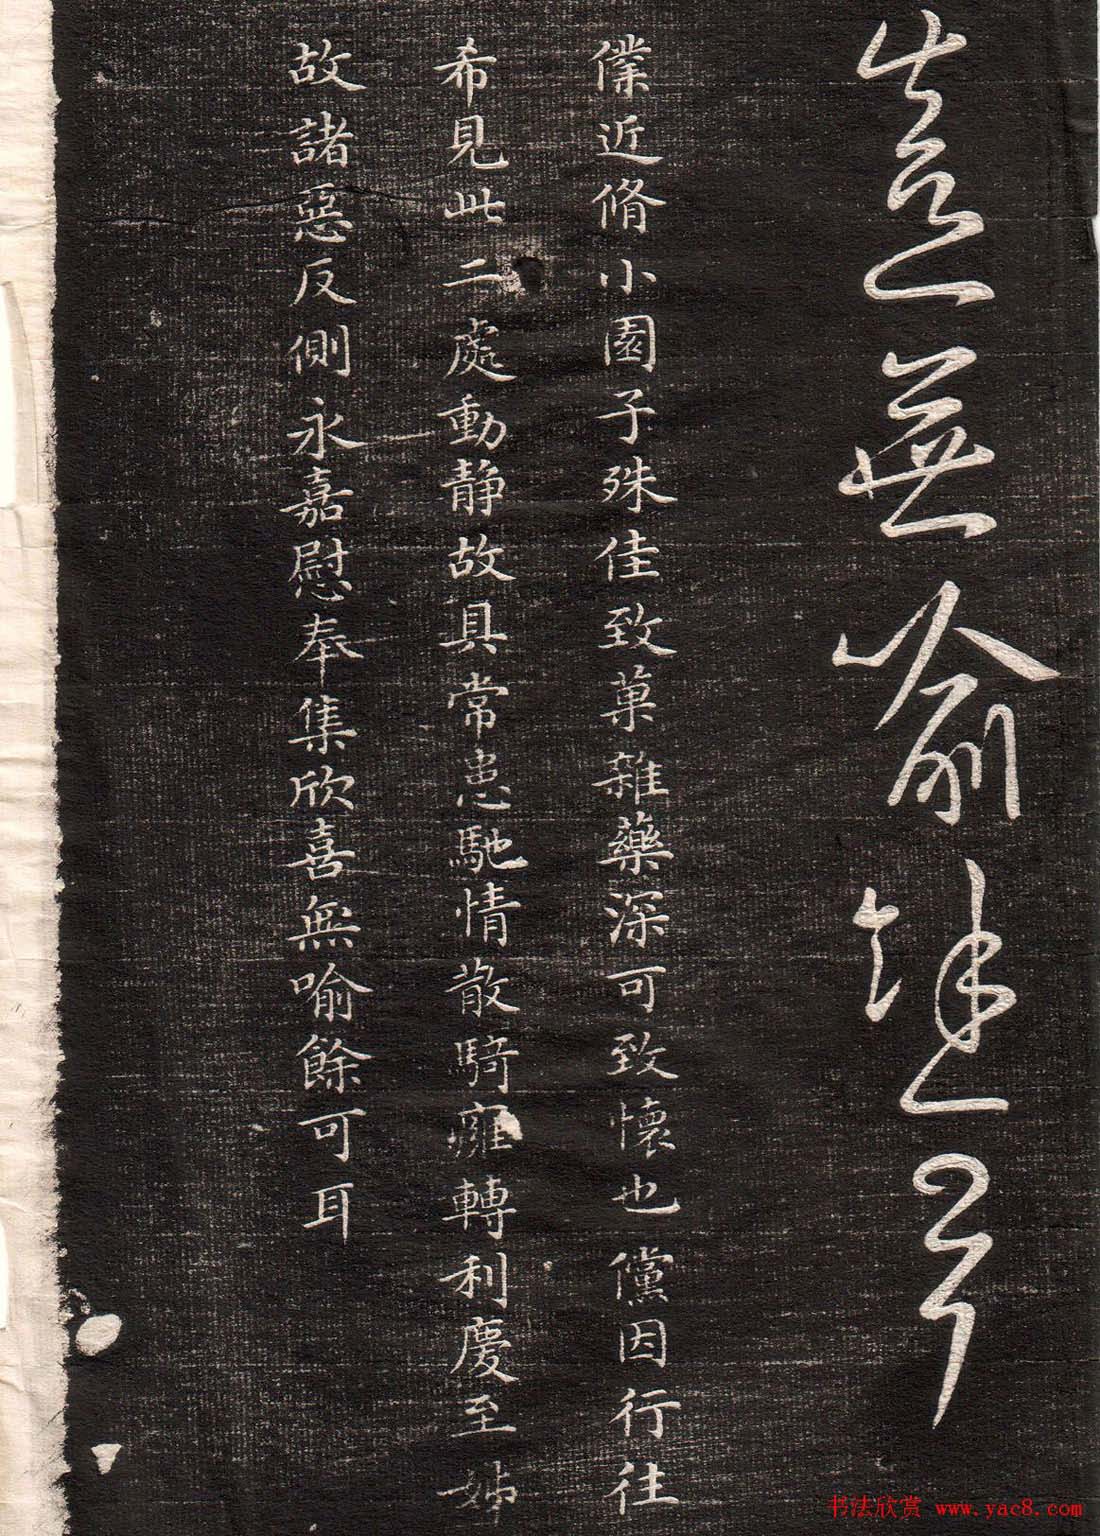 喜無喻餘可耳
僕近脩小園子殊佳致菓雜藥深可致懷也儻因行往
希見此二處動静故具常患馳情散騎癰轉利慶至姊
故諸惡反側永嘉慰奉集欣喜無喻餘可耳
书法欣赏 www.yac8.com